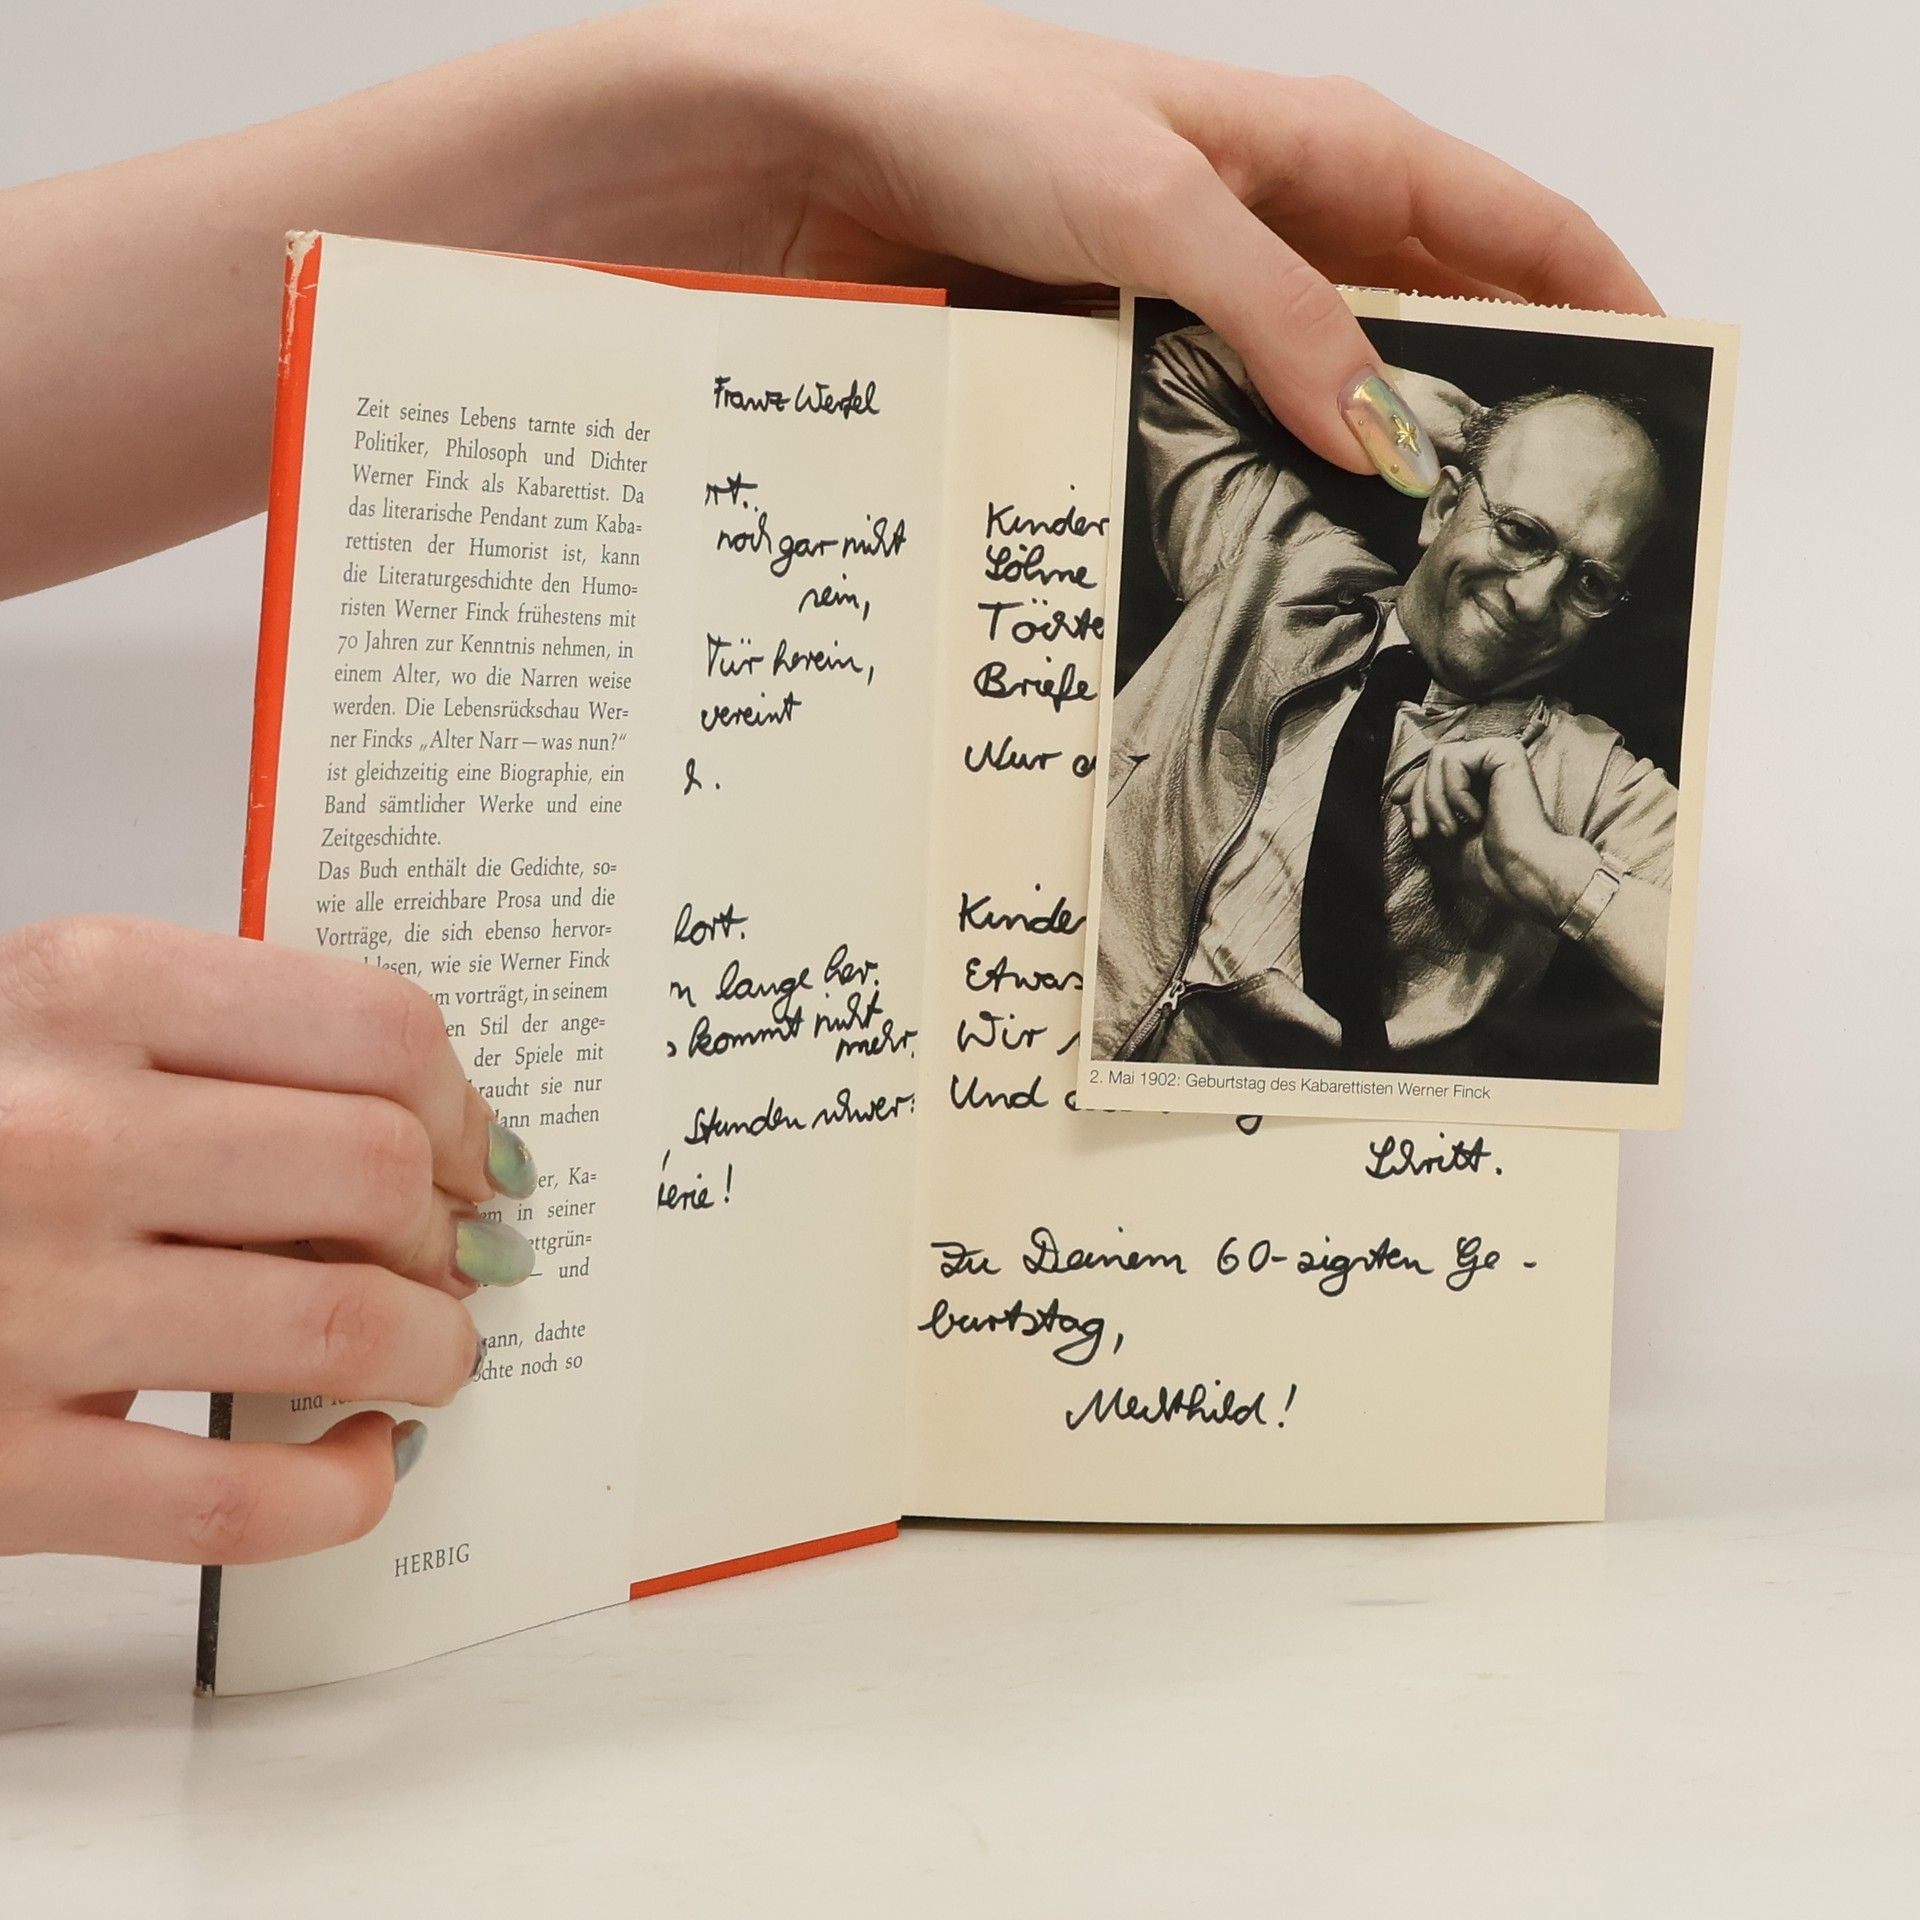 Zeit seines Lebens tarnte sich der
Politiker, Philosoph und Dichter
Werner Finck als Kabarettist. Da
das literarische Pendant zum Kaba=
rettisten der Humorist ist, kann
die Literaturgeschichte den Humo=
risten Werner Finck frühestens mit
70 Jahren zur Kenntnis nehmen, in
einem Alter, wo die Narren weise
werden. Die Lebensrückschau Wer=
ner Fincks „Alter Narr — was nun?“
ist gleichzeitig eine Biographie, ein
Band sämtlicher Werke und eine
Zeitgeschichte.
Das Buch enthält die Gedichte, so=
wie alle erreichbare Prosa und die
Vorträge, die sich ebenso hervor=
lesen, wie sie Werner Finck
vorträgt, in seinem
en Stil der ange=
der Spiele mit
raucht sie nur
ann machen
er, Ka=
em in seiner
ettgrün=
— und
ann, dachte
chte noch so
und
HERBIG
Franz Werfel
rt.
noch gar nicht
sein,
Tür herein,
vereint
lort.
n lange her.
kommt nicht
mehr.
, Stunden schwer:
erie!
Kinder
Söhne
Töchte
Briefe
Nur
Kinder
Etwas
Wir
Und
Schritt.
Zu Deinem 60-zigsten Ge-
burtstag,
Mechthild!
2. Mai 1902: Geburtstag des Kabarettisten Werner Finck